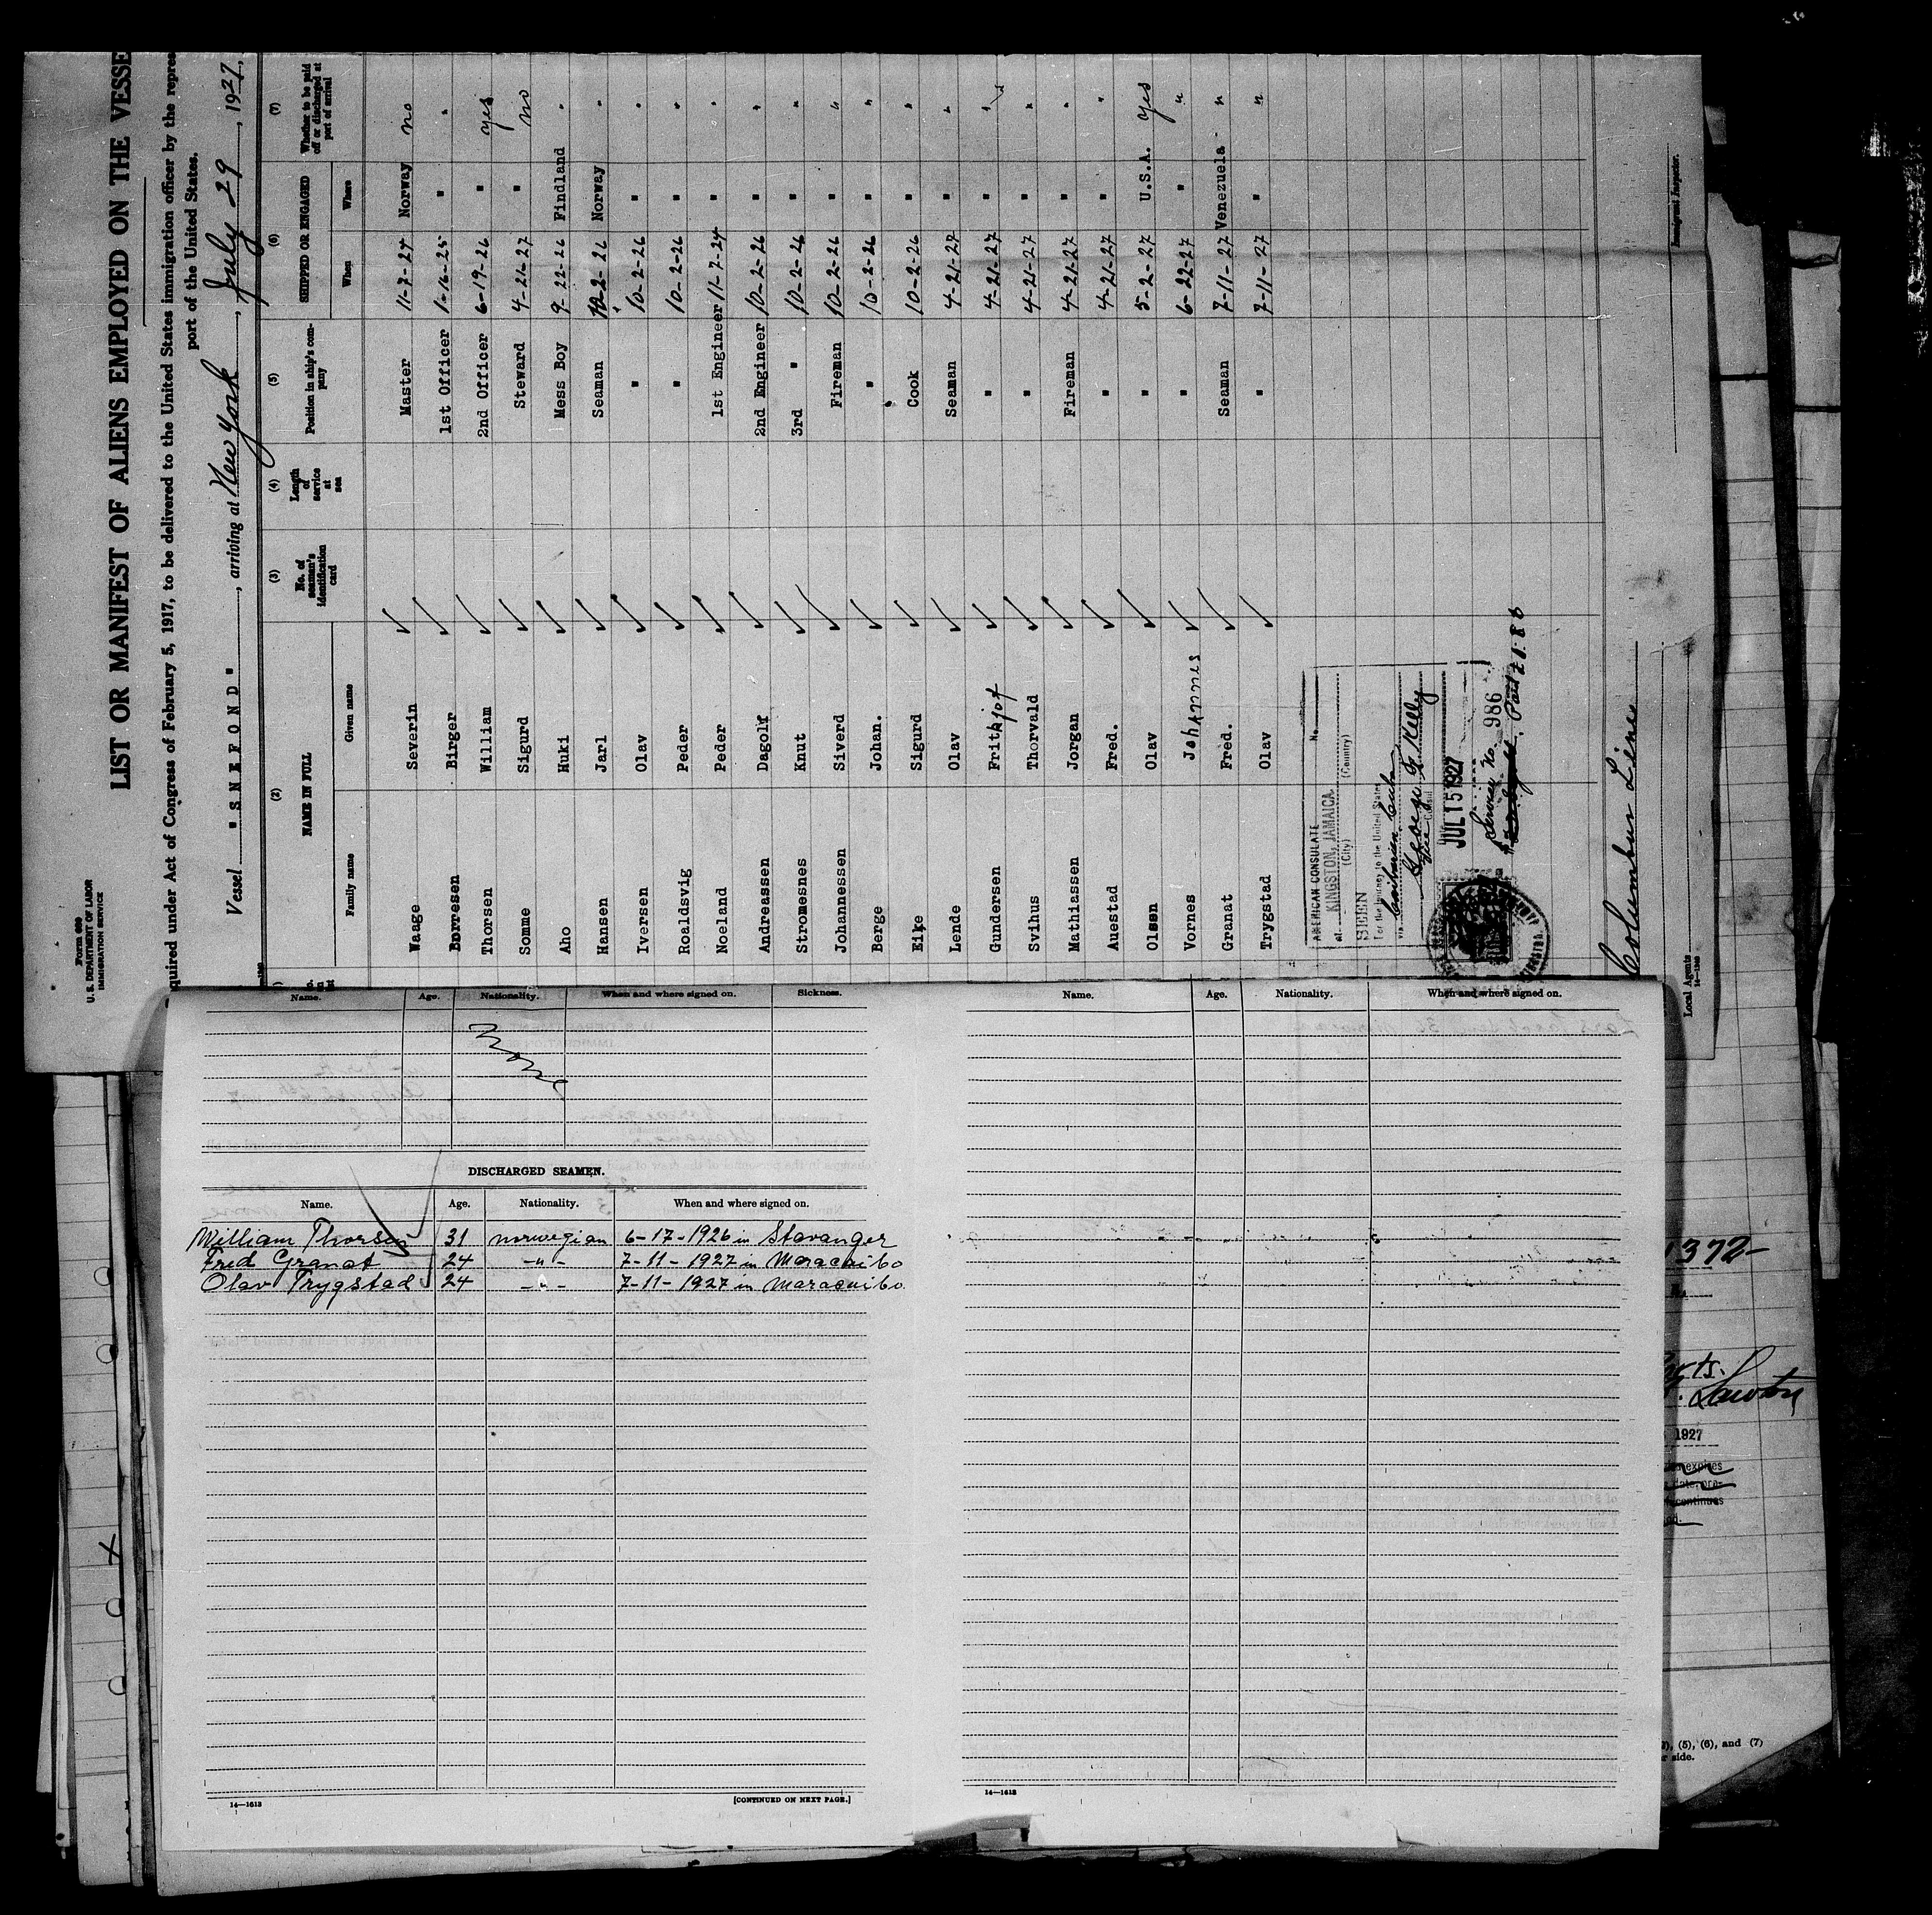 Form 689
U. S. DEPARTMENT OF LABOR
IMMIGRATION SERVICE
LIST OR MANIFEST OF ALIENS EMPLOYED ON THE VESSE
equired under Act of Congress of February 5, 1917, to be delivered to the United States immigration officer by the repres
port of the United States.
Vessel "SNEFOND", arriving at New York, July 29, 1927,
(2) (3) (4) (5) (6) (7)
NAME IN FULL No. of seaman's identification card Length of service at sea Position in ship's company SHIPPED OR ENGAGED Whether to be paid off or discharged at port of arrival
Family name Given name When Where
Waage Severin Master 11-7-24 Norway no
Borresen Birger 1st Officer 1-16-25 " "
Thorsen William 2nd Officer 6-19-26 " yes
Somme Sigurd Steward 4-21-27 " no
Aho Huki Mess Boy 9-22-26 Findland "
Hansen Jarl Seaman 10-2-26 Norway "
Iversen Olav " 10-2-26 " "
Roaldsvig Peder " 10-2-26 " "
Noeland Peder 1st Engineer 11-7-24 " "
Andreassen Dagolf 2nd Engineer 10-2-26 " "
Stromesnes Knut 3rd " 10-2-26 " "
Johannessen Siverd Fireman 10-2-26 " "
Berge Johan. " 10-2-26 " "
Eike Sigurd Cook 10-2-26 " "
Lende Olav Seaman 4-21-27 " "
Gundersen Frithjof " 4-21-27 " "
Svihus Thorvald " 4-21-27 " "
Mathiassen Jorgan Fireman 4-21-27 " "
Auestad Fred. " 4-21-27 " "
Olsen Olav " 5-2-27 U.S.A. yes
Vornes Johannes " 6-22-27 " "
Granat Fred. Seaman 7-11-27 Venezuela "
Trygstad Olav " 7-11-27 " "
AMERICAN CONSULATE No.
at KINGSTON, JAMAICA.
(City) (Country)
SEEN
For the journey to the United States
via
George F. Kelly
Vice Consul
JUL 15 1927
Service No. 986
Columbus Lines
Local Agents
14—1240
Immigrant Inspector.
Name. Age. Nationality. When and where signed on. Sickness.
None
DISCHARGED SEAMEN.
Name. Age. Nationality. When and where signed on.
William Thorsen 31 norwegian 6-17-1926 in Stavanger
Fred Granat 24 -"- 7-11-1927 in Maracaibo
Olav Trygstad 24 -"- 7-11-1927 in Maracaibo.
14—1613 [CONTINUED ON NEXT PAGE.]
Name. Age. Nationality. When and where signed on.
14—1613
1372-
1927
expires
continues
(5), (6), and (7)
side.